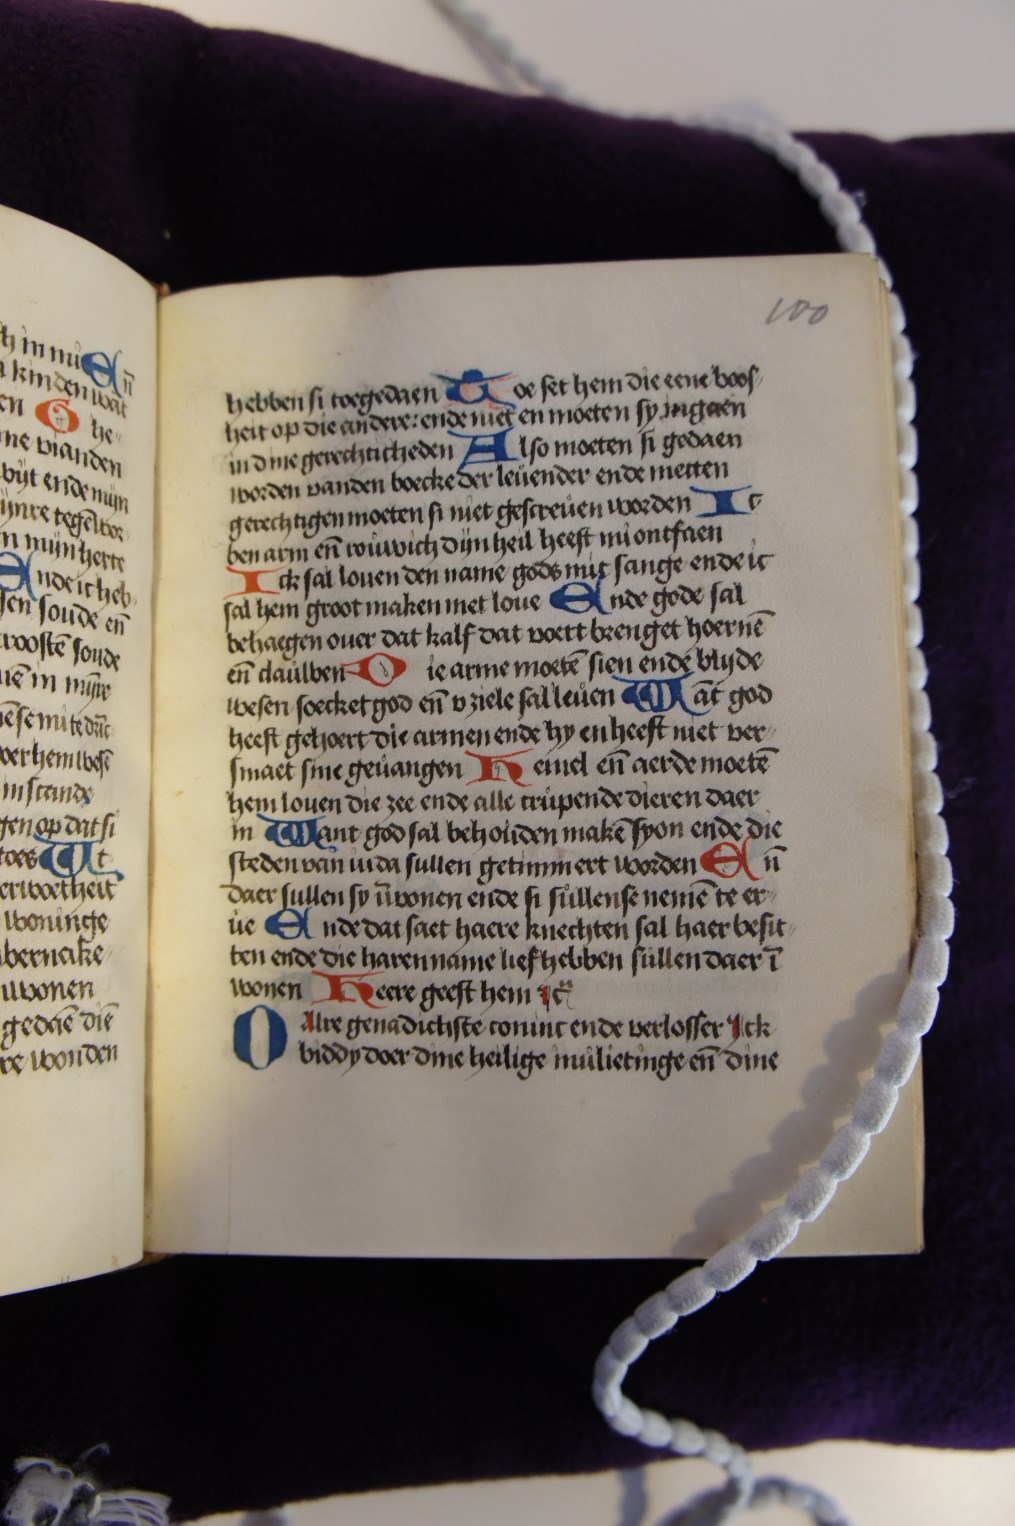 h in mij En
kinden wat
en O he-
me vianden
wijt ende mijn
ijnre tegēwor-
n mijn herte
Ende ic heb-
sen soude en̄
troostē soude
uē in mijnre
ēse mi te drāc
over hem wesē
in scande
gen op dat si
loes Wt
verwoetheit
woninge
abernake-
wonen
gedaē diē
re wonden
100
hebben si toegedaen Toe set hem die eene boos-
heit op die andere: ende niet en moeten sy ingaen
in dine gerechticheden Also moeten si gedaen
worden vanden boecke der levender ende metten
gerechtigen moeten si niet gescreven worden Ic
ben arm en̄ rouwich dijn heil heeft mi ontfaen
Ick sal loven den name gods mit sange ende ic
sal hem groot maken met love Ende gode sal
behaegen over dat kalf dat voert brenget hoernē
en̄ clauwen Die arme moetē sien ende blyde
wesen soecket god en̄ v ziele sal leven Wāt god
heeft gehoert die armen ende hy en heeft niet ver-
smaet sine gevangen Hemel en̄ aerde moetē
hem loven die zee ende alle crupende dieren daer
in Want god sal behouden makē syon ende die
steden van iuda sullen getimmert worden En̄
daer sullen sy īwonen ende si sullense nemē te er-
ve Ende dat saet haere knechten sal haer besit-
ten ende die haren name lief hebben sullen daer ī
wonen Heere geeft hem ⁊c̄
O Alre genadichste coninc ende verlosser Ick
biddy doer dine heilige in dine en̄ dine